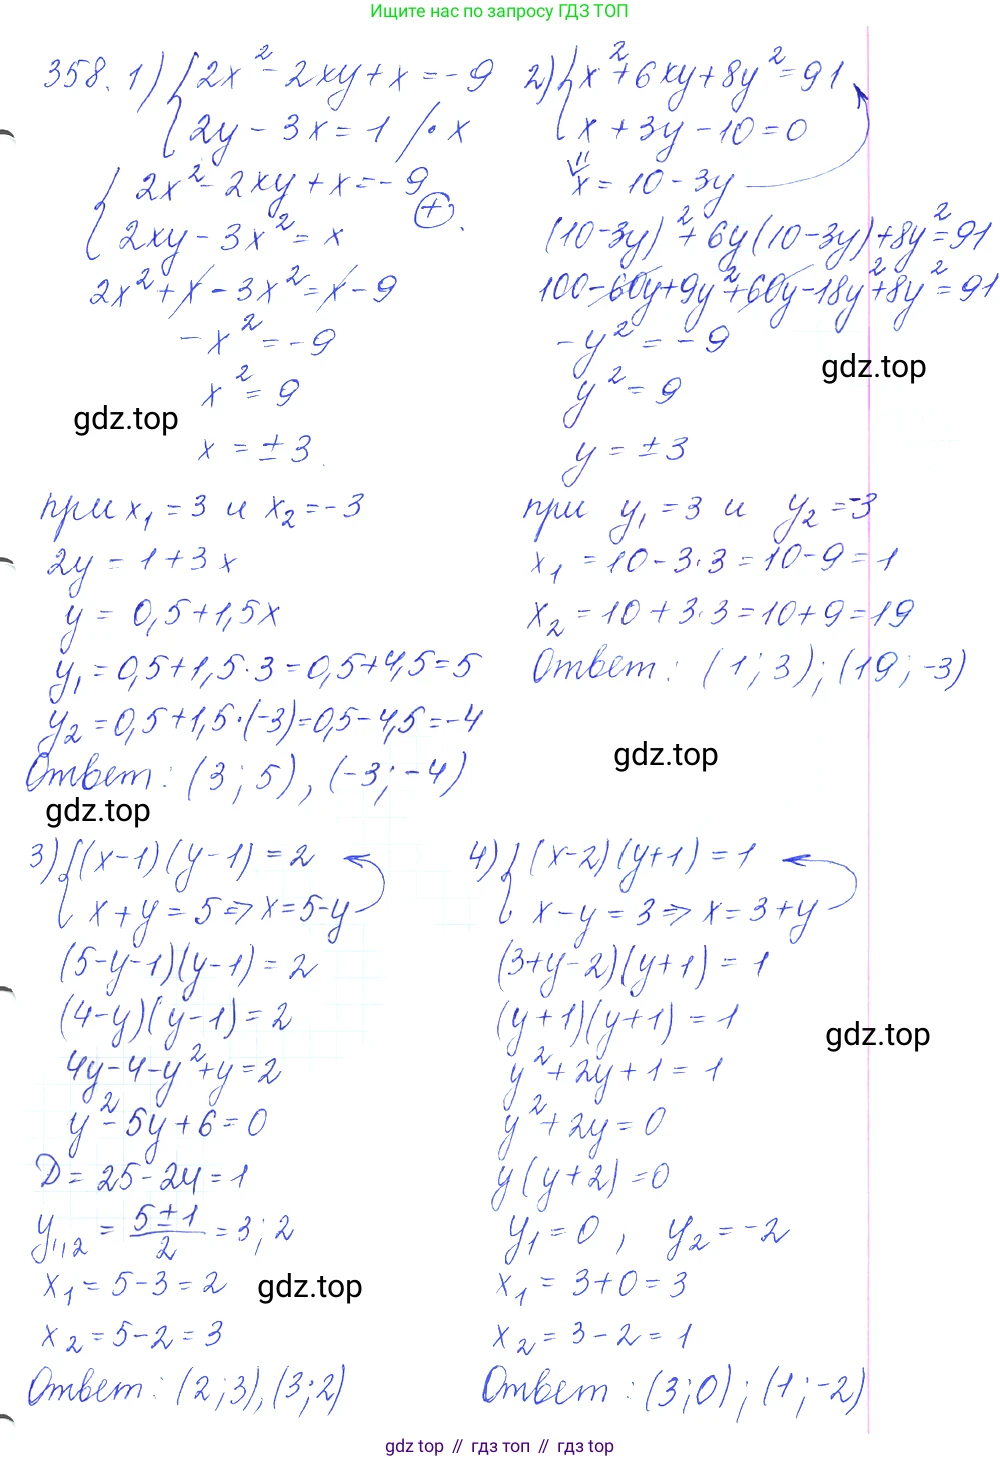 Ищите нас по запросу ГДЗ ТОП
358. 1) { 2x² - 2xy + x = -9
2y - 3x = 1 /· x
{ 2x² - 2xy + x = -9
2xy - 3x² = x (+).
2x² + x - 3x² = x - 9
-x² = -9
x² = 9
gdz.top
x = ±3
при x₁ = 3 и x₂ = -3
2y = 1 + 3x
y = 0,5 + 1,5x
y₁ = 0,5 + 1,5·3 = 0,5 + 4,5 = 5
y₂ = 0,5 + 1,5·(-3) = 0,5 - 4,5 = -4
Ответ: (3; 5), (-3; -4)
gdz.top
2) { x² + 6xy + 8y² = 91
x + 3y - 10 = 0
x = 10 - 3y
(10-3y)² + 6y(10-3y) + 8y² = 91
100 - 60y + 9y² + 60y - 18y² + 8y² = 91
-y² = -9
gdz.top
y² = 9
y = ±3
при y₁ = 3 и y₂ = -3
x₁ = 10 - 3·3 = 10 - 9 = 1
x₂ = 10 + 3·3 = 10 + 9 = 19
Ответ: (1; 3); (19; -3)
gdz.top
3) { (x-1)(y-1) = 2
x + y = 5 => x = 5-y
(5-y-1)(y-1) = 2
(4-y)(y-1) = 2
4y - 4 - y² + y = 2
y² - 5y + 6 = 0
D = 25 - 24 = 1
y₁,₂ = (5±1)/2 = 3; 2
x₁ = 5 - 3 = 2
gdz.top
x₂ = 5 - 2 = 3
Ответ: (2; 3), (3; 2)
4) { (x-2)(y+1) = 1
x - y = 3 => x = 3 + y
(3+y-2)(y+1) = 1
(y+1)(y+1) = 1
gdz.top
y² + 2y + 1 = 1
y² + 2y = 0
y(y+2) = 0
y₁ = 0, y₂ = -2
x₁ = 3 + 0 = 3
x₂ = 3 - 2 = 1
Ответ: (3; 0); (1; -2)
gdz top // гдз топ // гдз top